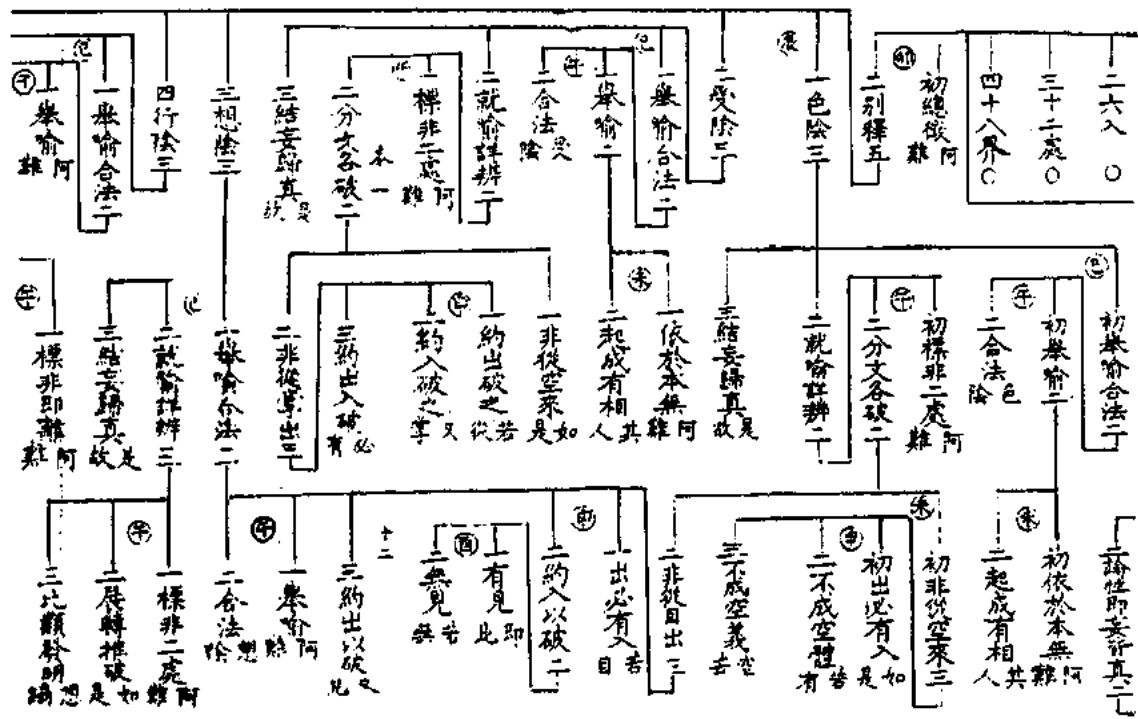 二六入 〇
三十二處 〇
四十八界 〇
初總徵 阿難
二別釋五
一色陰三
二受陰三
一舉喻合法二
一舉喻二
二合法 受陰
二就喻詳辨二
一標非二處 阿難
二分文各破二
三結妄歸真 是故
三想陰三
四行陰三
一舉喻合法二
一舉喻 阿難
初舉喻合法二
初舉喻二
二合法 色陰
初標非二處 阿難
二分文各破二
二就喻詳辨二
三結妄歸真 是故
一依於本無 阿難
二起成有相 其人
一非從空來 如是
一約出破之 若從
二約入破之 又掌
三約出入破 必有
二非從掌出三
一舉喻合法二
二就喻詳辨三
三結妄歸真 是故
一標非即離 阿難
二論性即妄皆真二
初依於本無 阿難
二起成有相 其人
初非從空來三
初出必有入 如是
二不成空體 若有
三不成空義 空若
二非從目出三
一出必有入 若目
二約入以破二
一有見 即此
二無見 若無
三約出以破 又見
十二
一舉喻 阿難
二合法 想陰
一標非二處 阿難
二展轉推破 如是
三比類發明 想踏